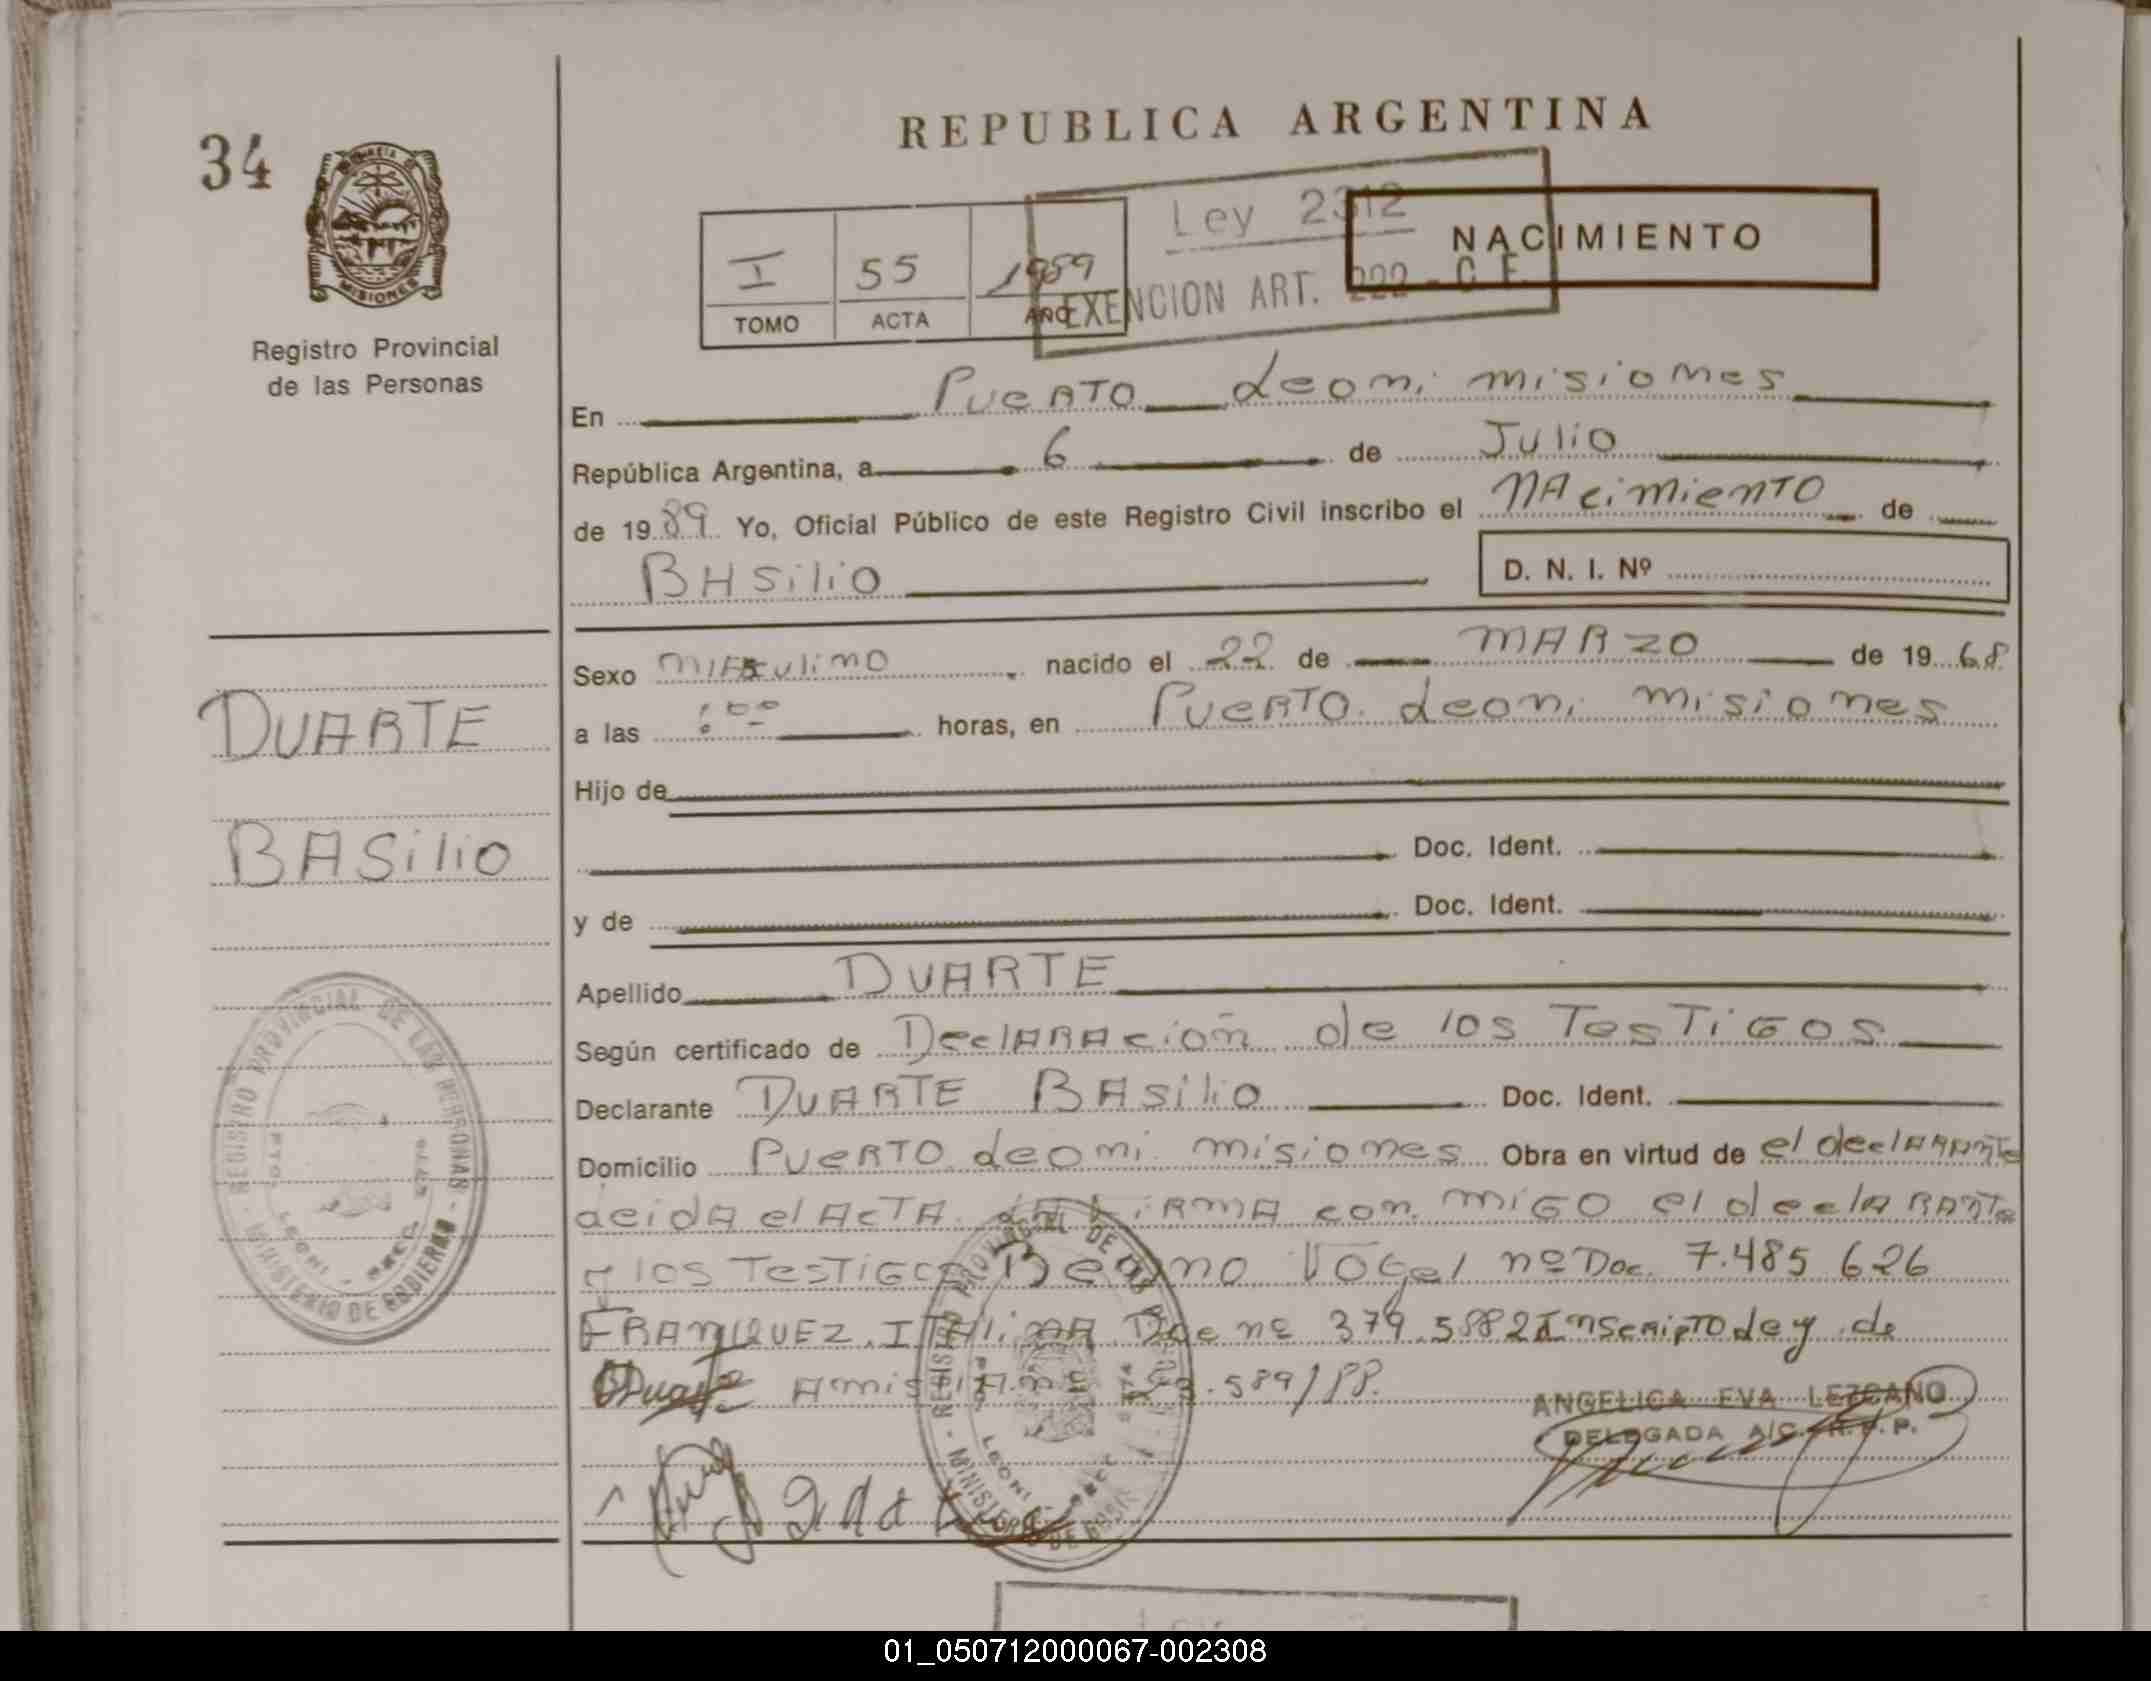 34
REPUBLICA ARGENTINA
Ley 2312
NACIMIENTO
EXENCION ART. 222 - C. F.
I 55 1989
TOMO ACTA AÑO
MISIONES
Registro Provincial
de las Personas
En PUERTO Leoni misiones
República Argentina, a 6 de Julio
de 1989 Yo, Oficial Público de este Registro Civil inscribo el NAcimiento de
BASilio
D. N. I. Nº
Sexo MASculino nacido el 22 de MARZO de 1968
a las horas, en PUERTO Leoni misiones
Hijo de
Doc. Ident.
y de Doc. Ident.
DUARTE
BASilio
Apellido DUARTE
Según certificado de DeclARAción de los TesTiGOS
Declarante DUARTE BASilio Doc. Ident.
Domicilio PUERTO Leoni misiones Obra en virtud de el declARANTe
Leida el ActA FiRMA con miGO el declARANTe
y los TesTiGOS VOGel nº Doc. 7.485 626
FRANQUEZ ITAliNA Doc nº 379.5882 InscriptO Ley de
Duarte Amis 23.589/88.
ANGELICA EVA LEZCANO
DELEGADA A/C. R.P.P.
REGISTRO PROVINCIAL DE LAS PERSONAS
MINISTERIO DE GOBIERNO
PTO. LEONI
REGISTRO PROVINCIAL DE LAS
MINISTERIO DE
LEONI
01_050712000067-002308